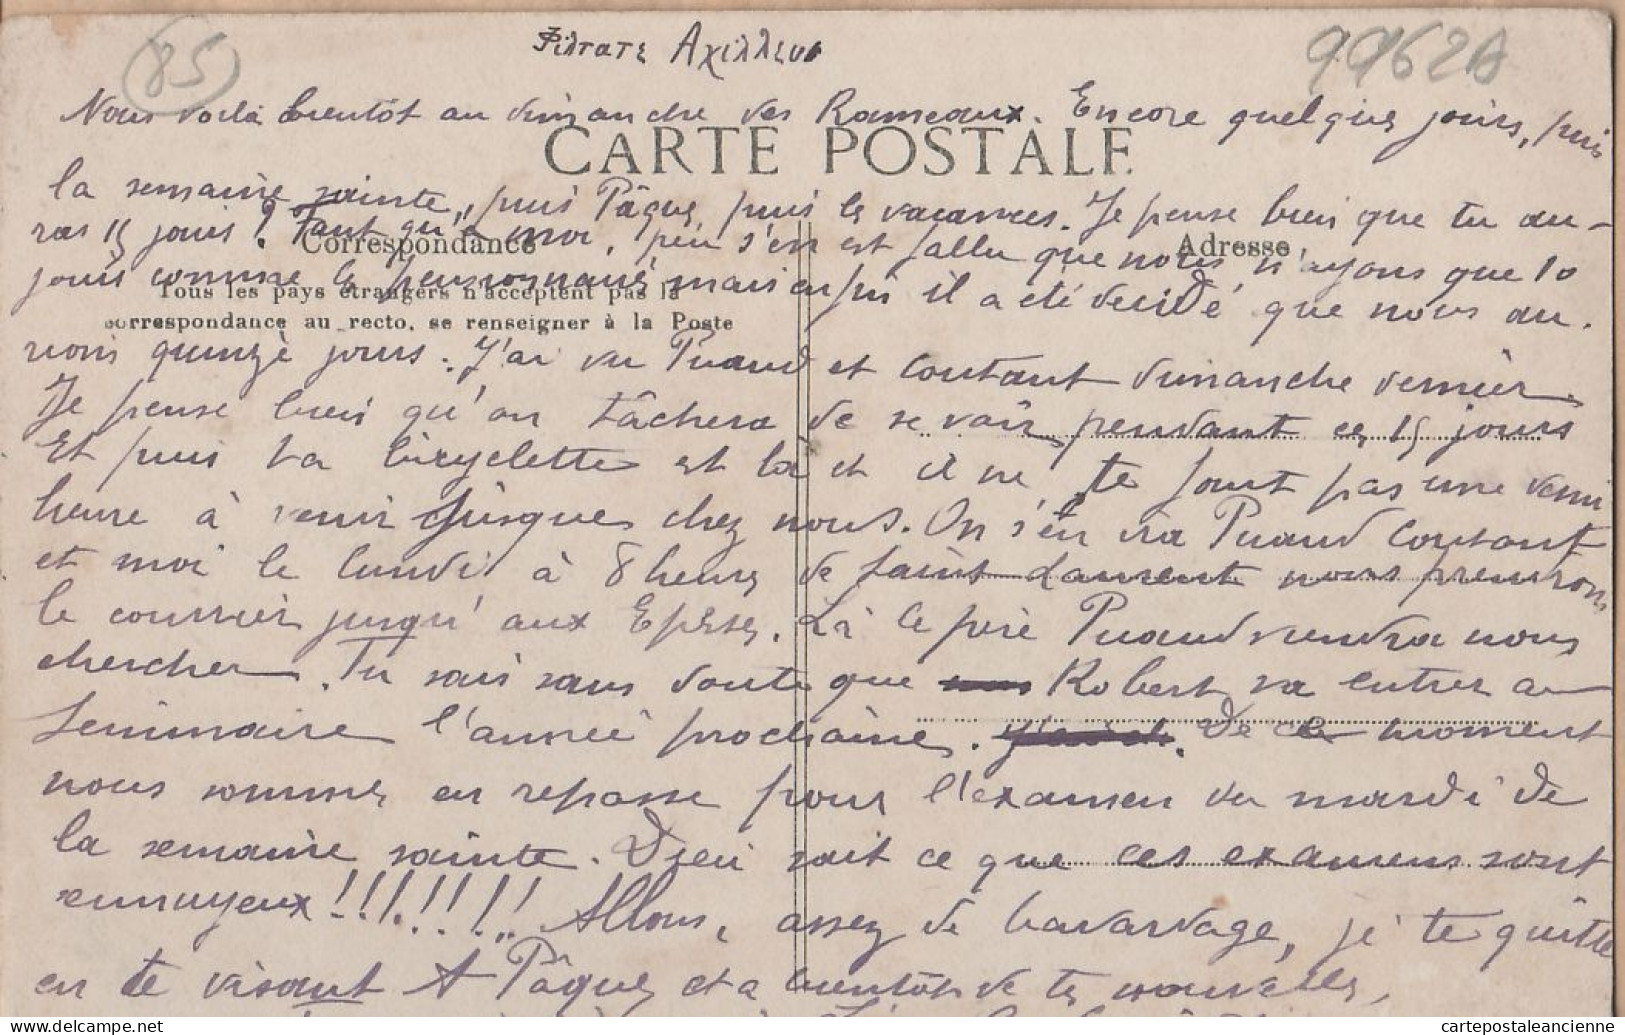 85
Φίλτατε Αχιλλευς
9962A
Nous voilà bientôt au dimanche des Rameaux. Encore quelques jours, puis
CARTE POSTALE
la semaine sainte, puis Pâques, puis les vacances. Je pense bien que tu au-
ras 15 jours ? Tant qu'à moi, peu s'en est fallu que nous n'ayons que 10
Correspondance
Adresse
jours comme les pensionnaires mais enfin il a été décidé que nous au-
Tous les pays étrangers n'acceptent pas la
correspondance au recto, se renseigner à la Poste
rions quinze jours. J'ai vu Puaud et Coutant dimanche dernier.
Je pense bien qu'on tâchera de se voir pendant ces 15 jours
Et puis ta bicyclette est là et il ne te faut pas une demi
heure à venir jusque chez nous. On s'en ira Puaud Coutant
et moi le lundi à 8 heures de Saint Laurent nous prendrons
le courrier jusqu'aux Epesses. Là le père Puaud viendra nous
chercher. Tu sais sans doute que Robert va entrer au
Séminaire l'année prochaine. De ce moment
nous sommes en repasse pour l'examen du mardi de
la semaine sainte. Dieu sait ce que ces examens sont
ennuyeux !!!!!!!! Allons, assez de bavardage, je te quitte
en te disant A Pâques et à bientôt de tes nouvelles,
cartepostaleancienne